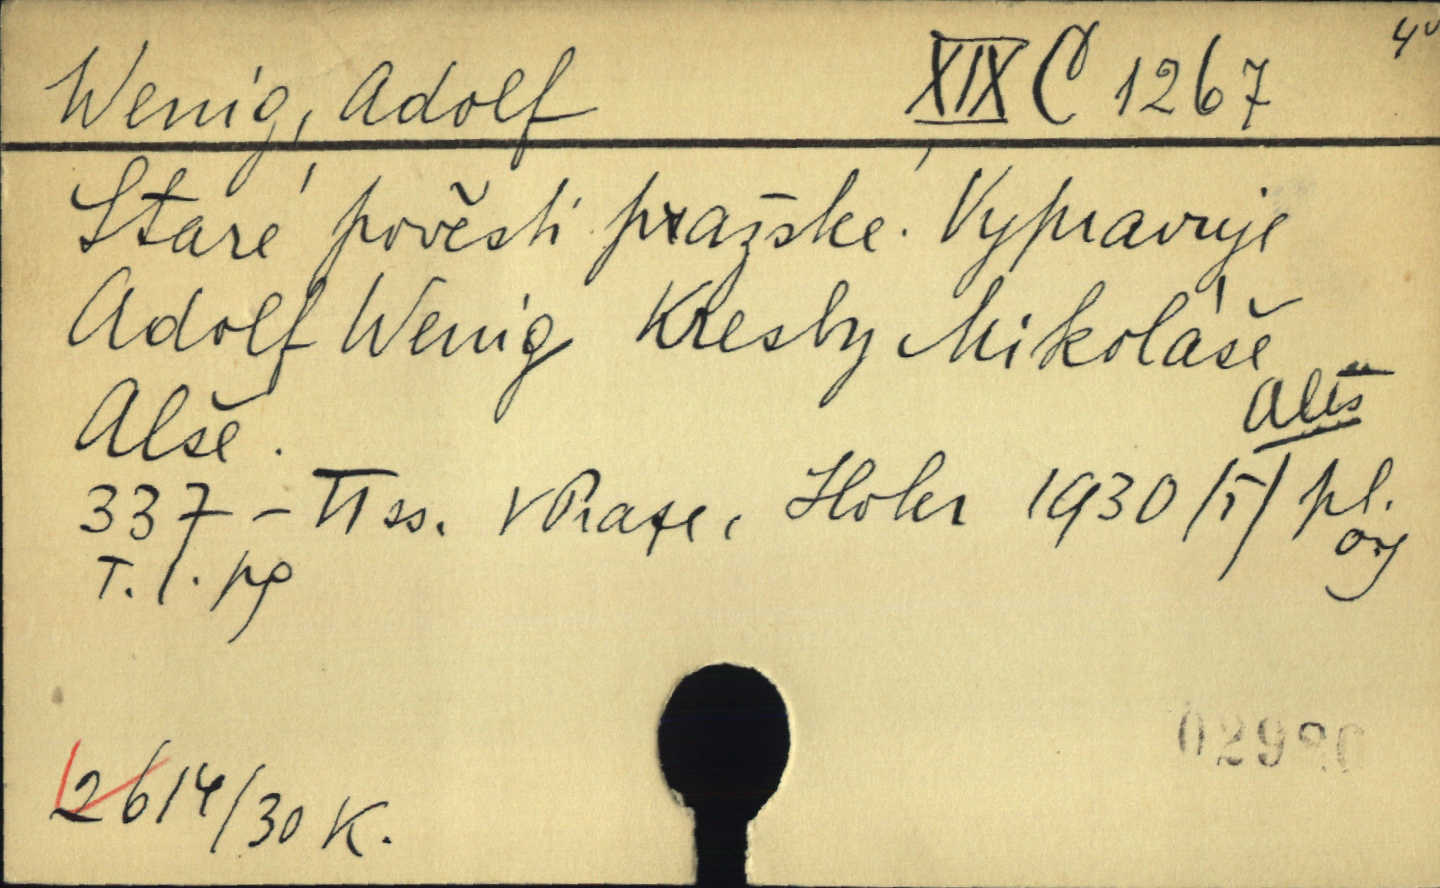 Wenig, Adolf XIX C 1267 4°
Staré pověsti pražské. Vypravuje
Adolf Wenig Kresby Mikoláše
Alše. Aleš
337 - II ss. V Praze, Höfer 1930 /I/ pl.
T. l. pg
02980
2614/30 K.